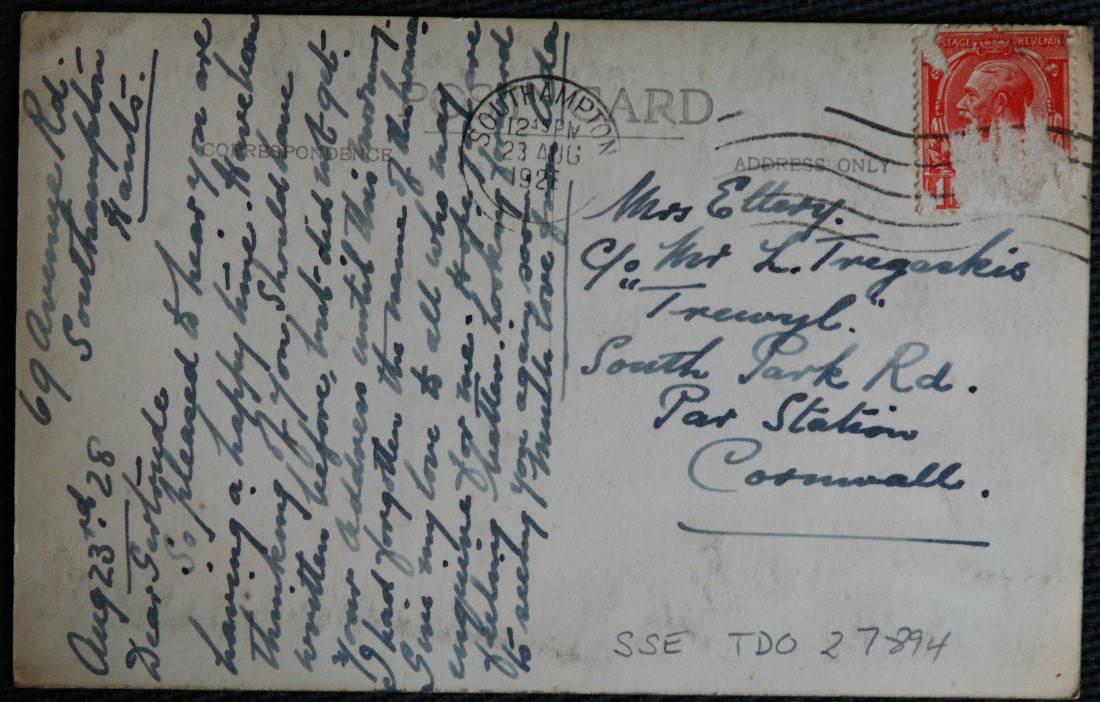 POST CARD
CORRESPONDENCE
ADDRESS ONLY
SOUTHAMPTON
12
PM
23 AUG
192
STAGE REVENUE
69 Avenue Rd.
Southampton
Hants.
Aug 23rd 28
Dear Gertrude
So pleased to hear you are
having a happy time. Have been
thinking of you. Should have
written before, but did not get
your address until this morning.
I had forgotten the name of the house
Give my love to all who may
enquire for me. Hope you are
feeling "fatter." Looking forward
to seeing you again soon. Much love from
Mrs Ettery.
C/o Mr L. Tregaskis
"Trewyl."
South Park Rd.
Par Station
Cornwall.
SSE TDO 27894